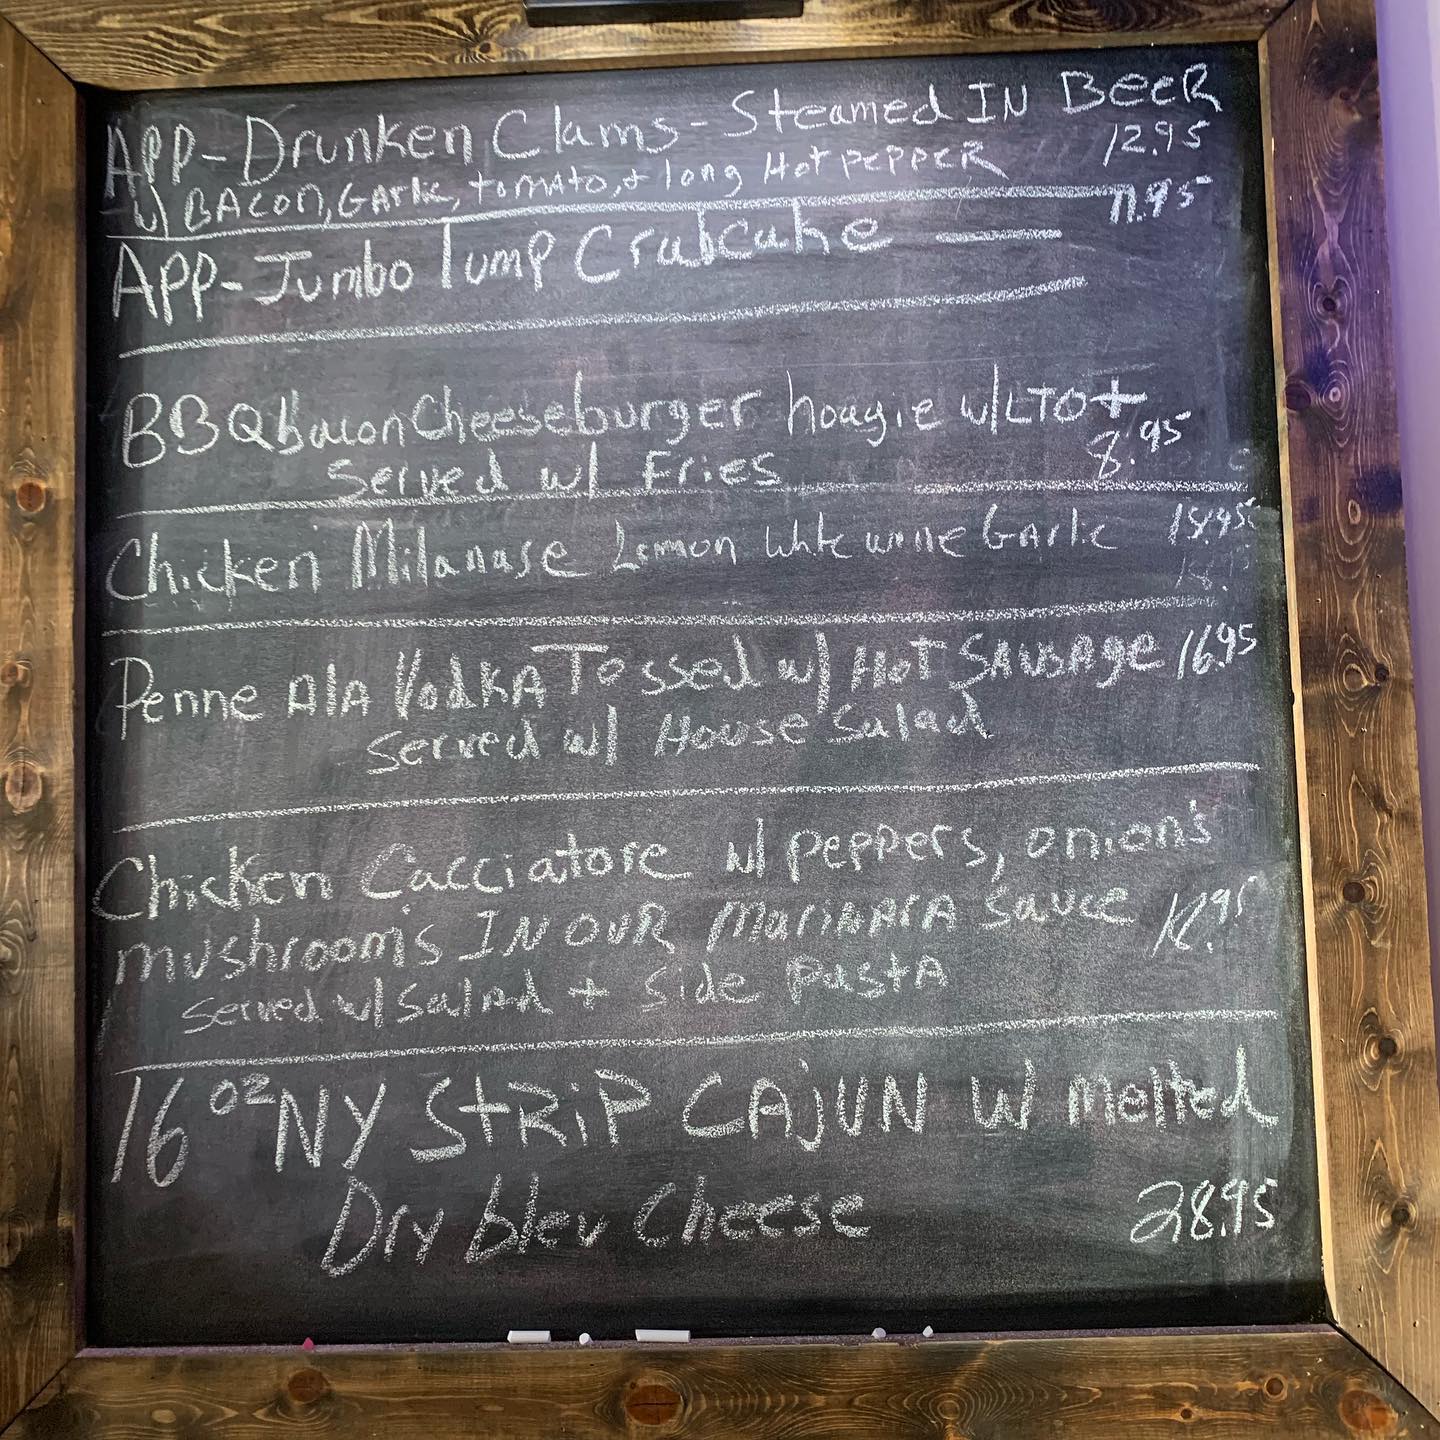 APP-Drunken Clams-Steamed IN BeeR
w/ BACon, GArlic, tomAto, + long HotpePPeR 12.95
APP-Jumbo lump Crabcake 11.95
BBQ bacon Cheeseburger hoagie w/LTO+
Served w/ Fries 8.95
Chicken Milanase Lemon white wine Garlic
Penne AlA VodkA Tossed w/ Hot SAusAge 16.95
served w/ House Salad
Chicken Cacciatore w/ peppers, onion's
mushroom's IN OUR MarinArA Sauce
served w/ SalAd + Side pastA
16 oz NY StRiP CAjUN W melted
Dry bleu Cheese 28.95